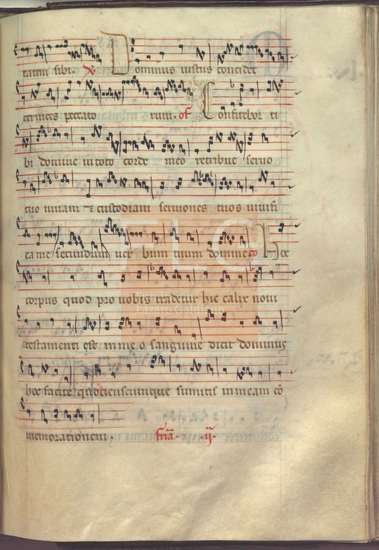 tauerunt sibi. V. Dominus iustus concidet
ceruices peccatorum. of. Confitebor ti
bi domine in toto corde meo retribue seruo
tuo uiuam et custodiam sermones tuos uiuifi
ca me secundum uerbum tuum domine co Hoc
corpus quod pro uobis tradetur hic calix noui
testamenti est in meo sanguine dicit dominus
hoc facite quotienscumque sumitis in meam cō
memorationem. fria. ii.